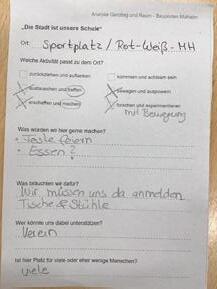 Analyse Ganztag und Raum - Baupiloten Mülheim
„Die Stadt ist unsere Schule“
Ort: Sportplatz / Rot-Weiß-MH
Welche Aktivität passt zu dem Ort?
zurückziehen und auftanken
kommen und achtsam sein
austauschen und treffen
bewegen und auspowern
erschaffen und machen
forschen und experimentieren
mit Bewegung
Was würden wir hier gerne machen?
Feste feiern
Essen?
Was bräuchten wir dafür?
Wir müssen uns da anmelden
Tische & Stühle
Wer könnte uns dabei unterstützen?
Verein
Ist hier Platz für viele oder eher wenige Menschen?
viele